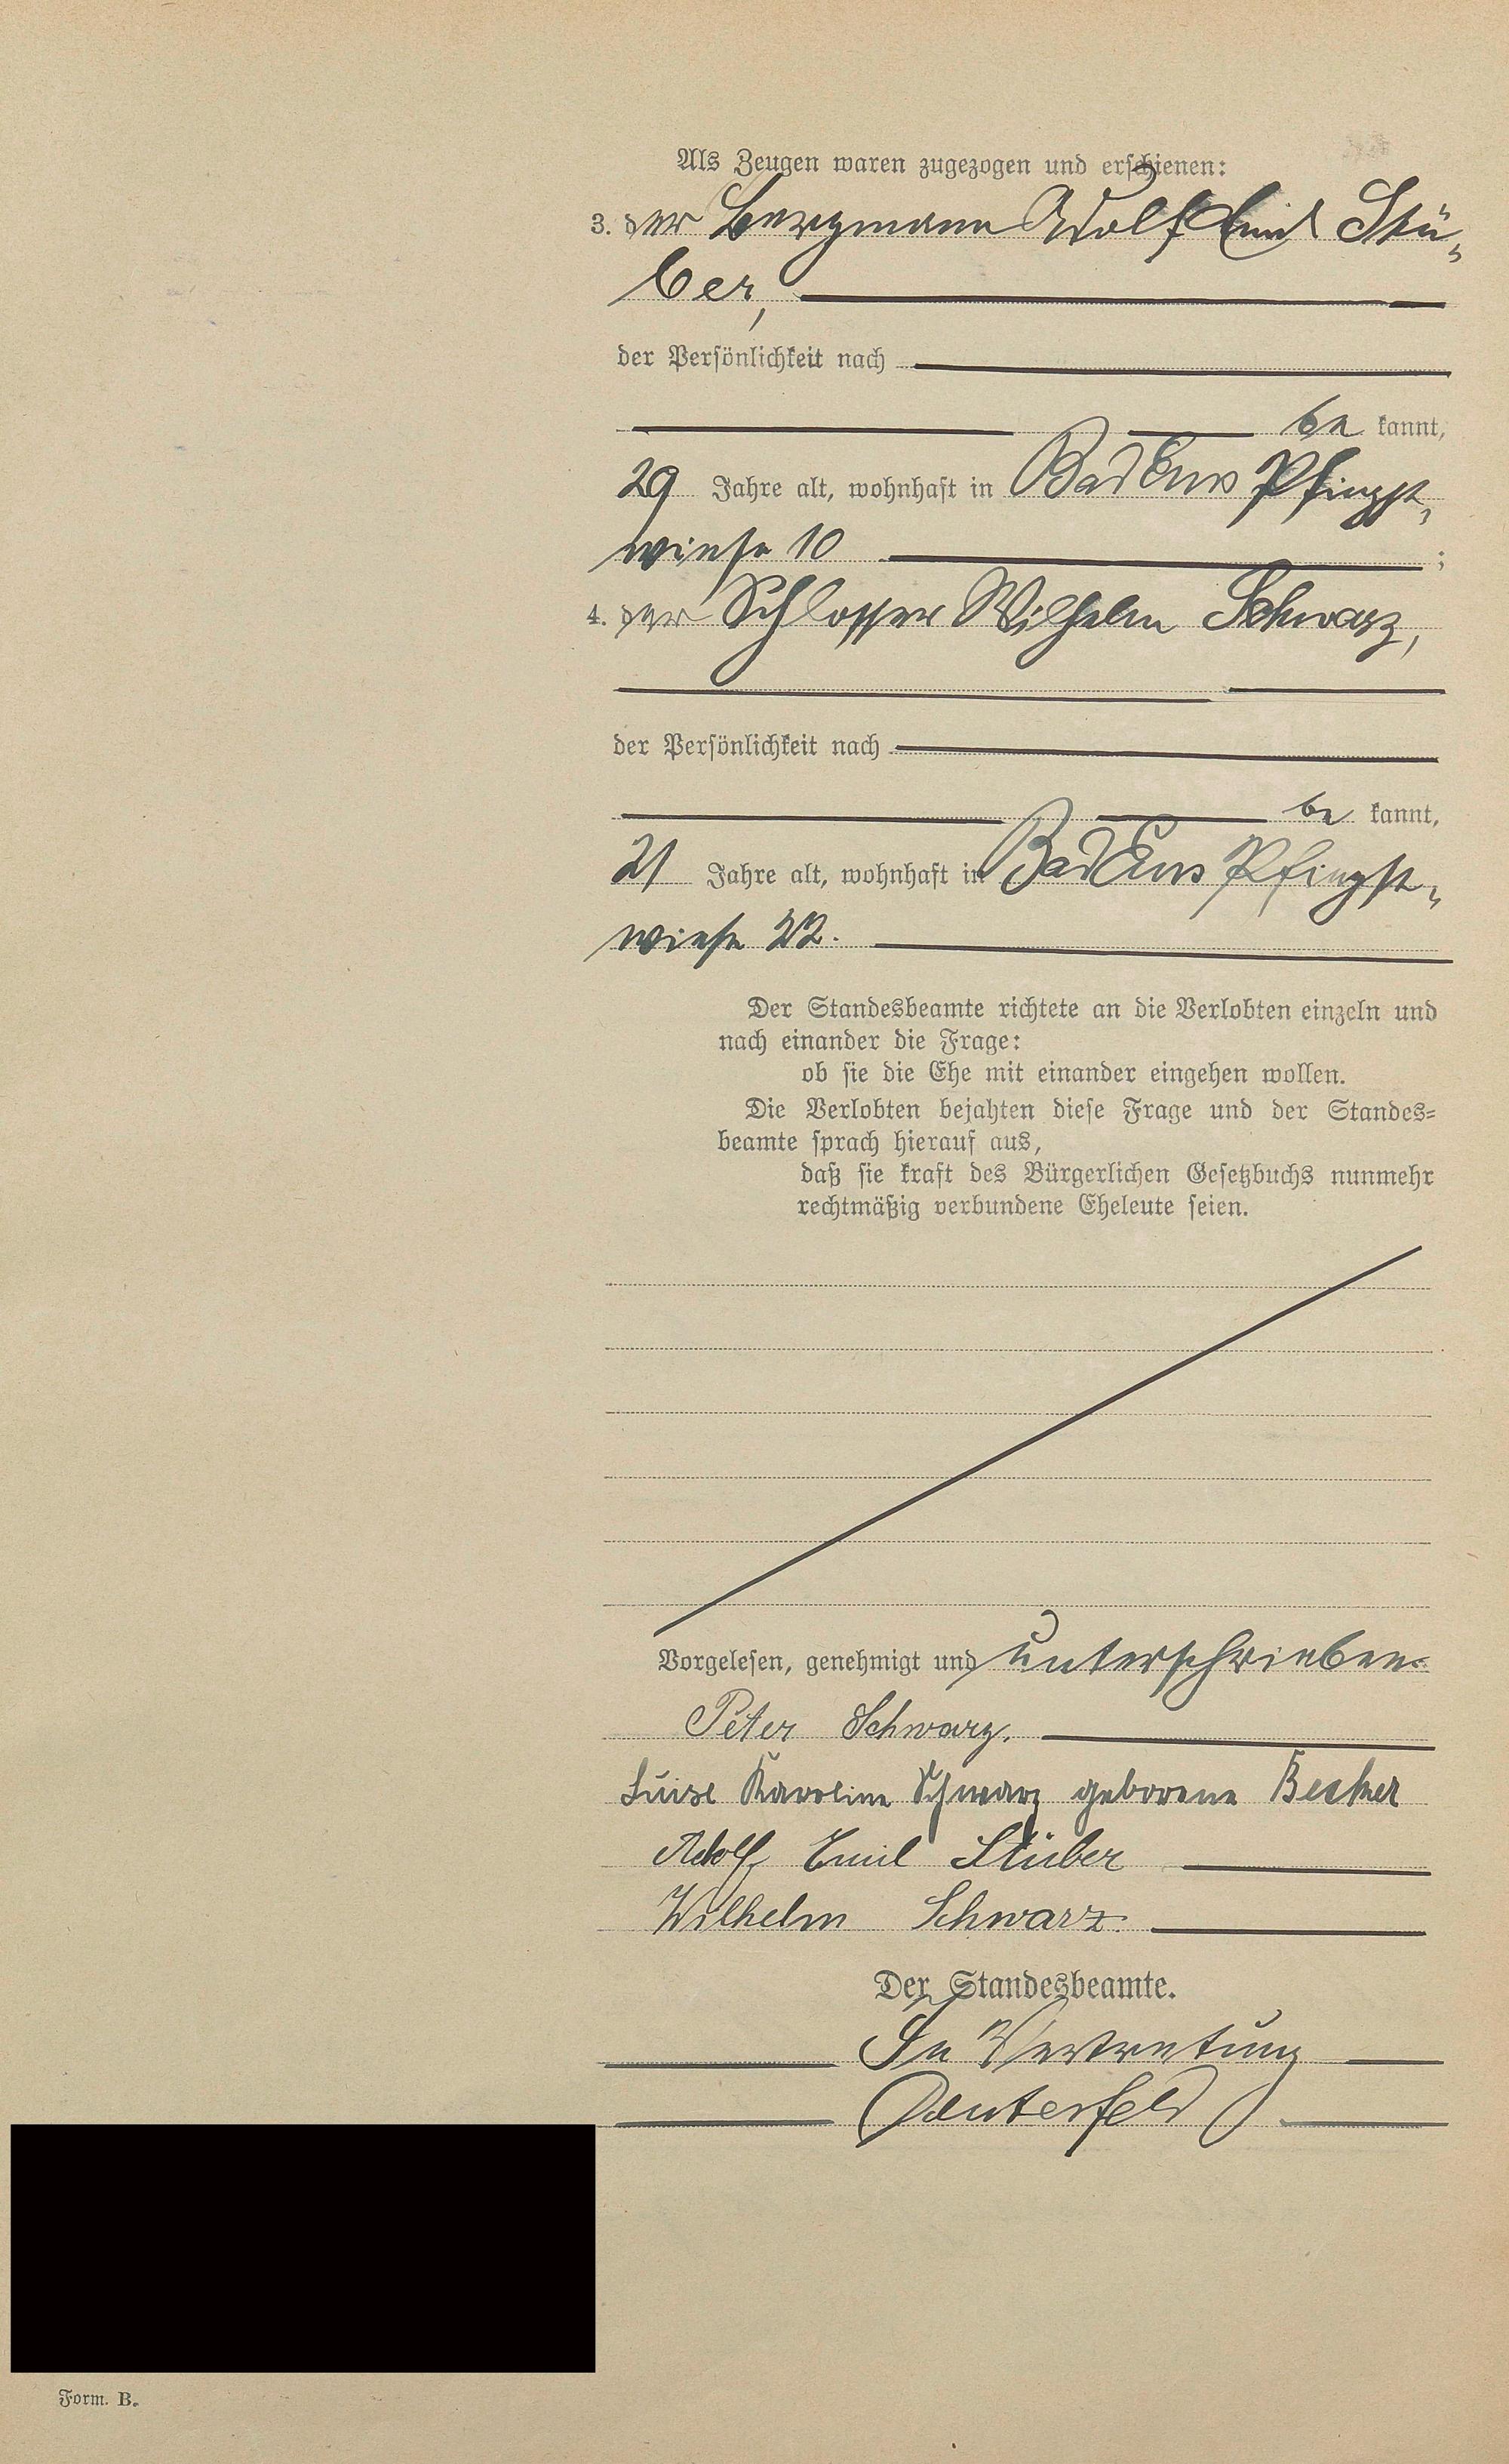 Als Zeugen waren zugezogen und erschienen:
3. der Bergmann Adolf Emil Stü-
ber,
der Persönlichkeit nach
be kannt,
29 Jahre alt, wohnhaft in Bad Ems Pfingst-
wiese 10 ;
4. der Schlosser Wilhelm Schwarz,
der Persönlichkeit nach
be kannt,
21 Jahre alt, wohnhaft in Bad Ems Pfingst-
wiese 22.
Der Standesbeamte richtete an die Verlobten einzeln und
nach einander die Frage:
ob sie die Ehe mit einander eingehen wollen.
Die Verlobten bejahten diese Frage und der Standes-
beamte sprach hierauf aus,
daß sie kraft des Bürgerlichen Gesetzbuchs nunmehr
rechtmäßig verbundene Eheleute seien.
Vorgelesen, genehmigt und unterschrieben.
Peter Schwarz.
Luise Karoline Schwarz geborene Becker
Adolf Emil Stüber
Wilhelm Schwarz.
Der Standesbeamte.
In Vertretung
Form. B.